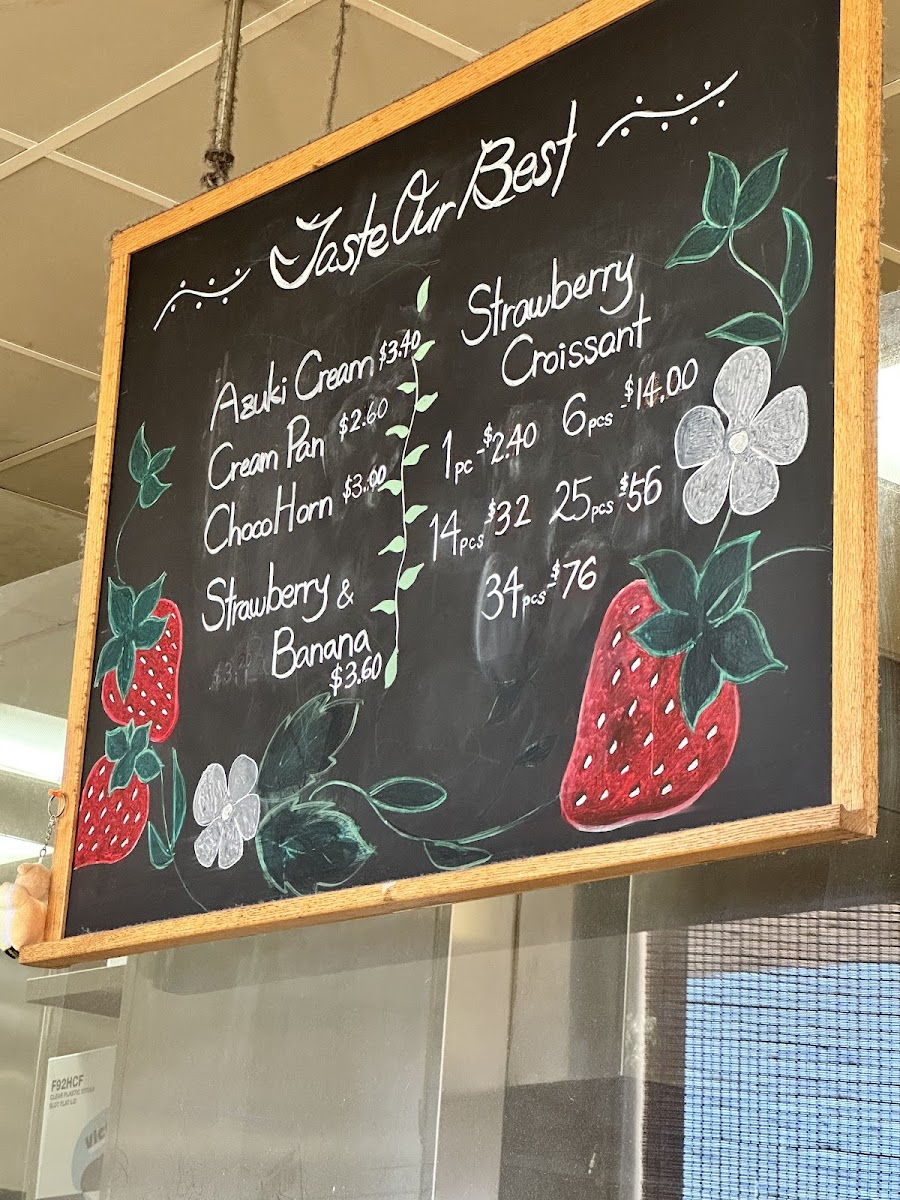 Taste Our Best
Azuki Cream $3.40
Cream Pan $2.60
Choco Horn $3.00
Strawberry &
Banana
$3.60
Strawberry
Croissant
1pc-$2.40 6pcs-$14.00
14pcs $32 25pcs $56
34pcs-$76
F92HCF